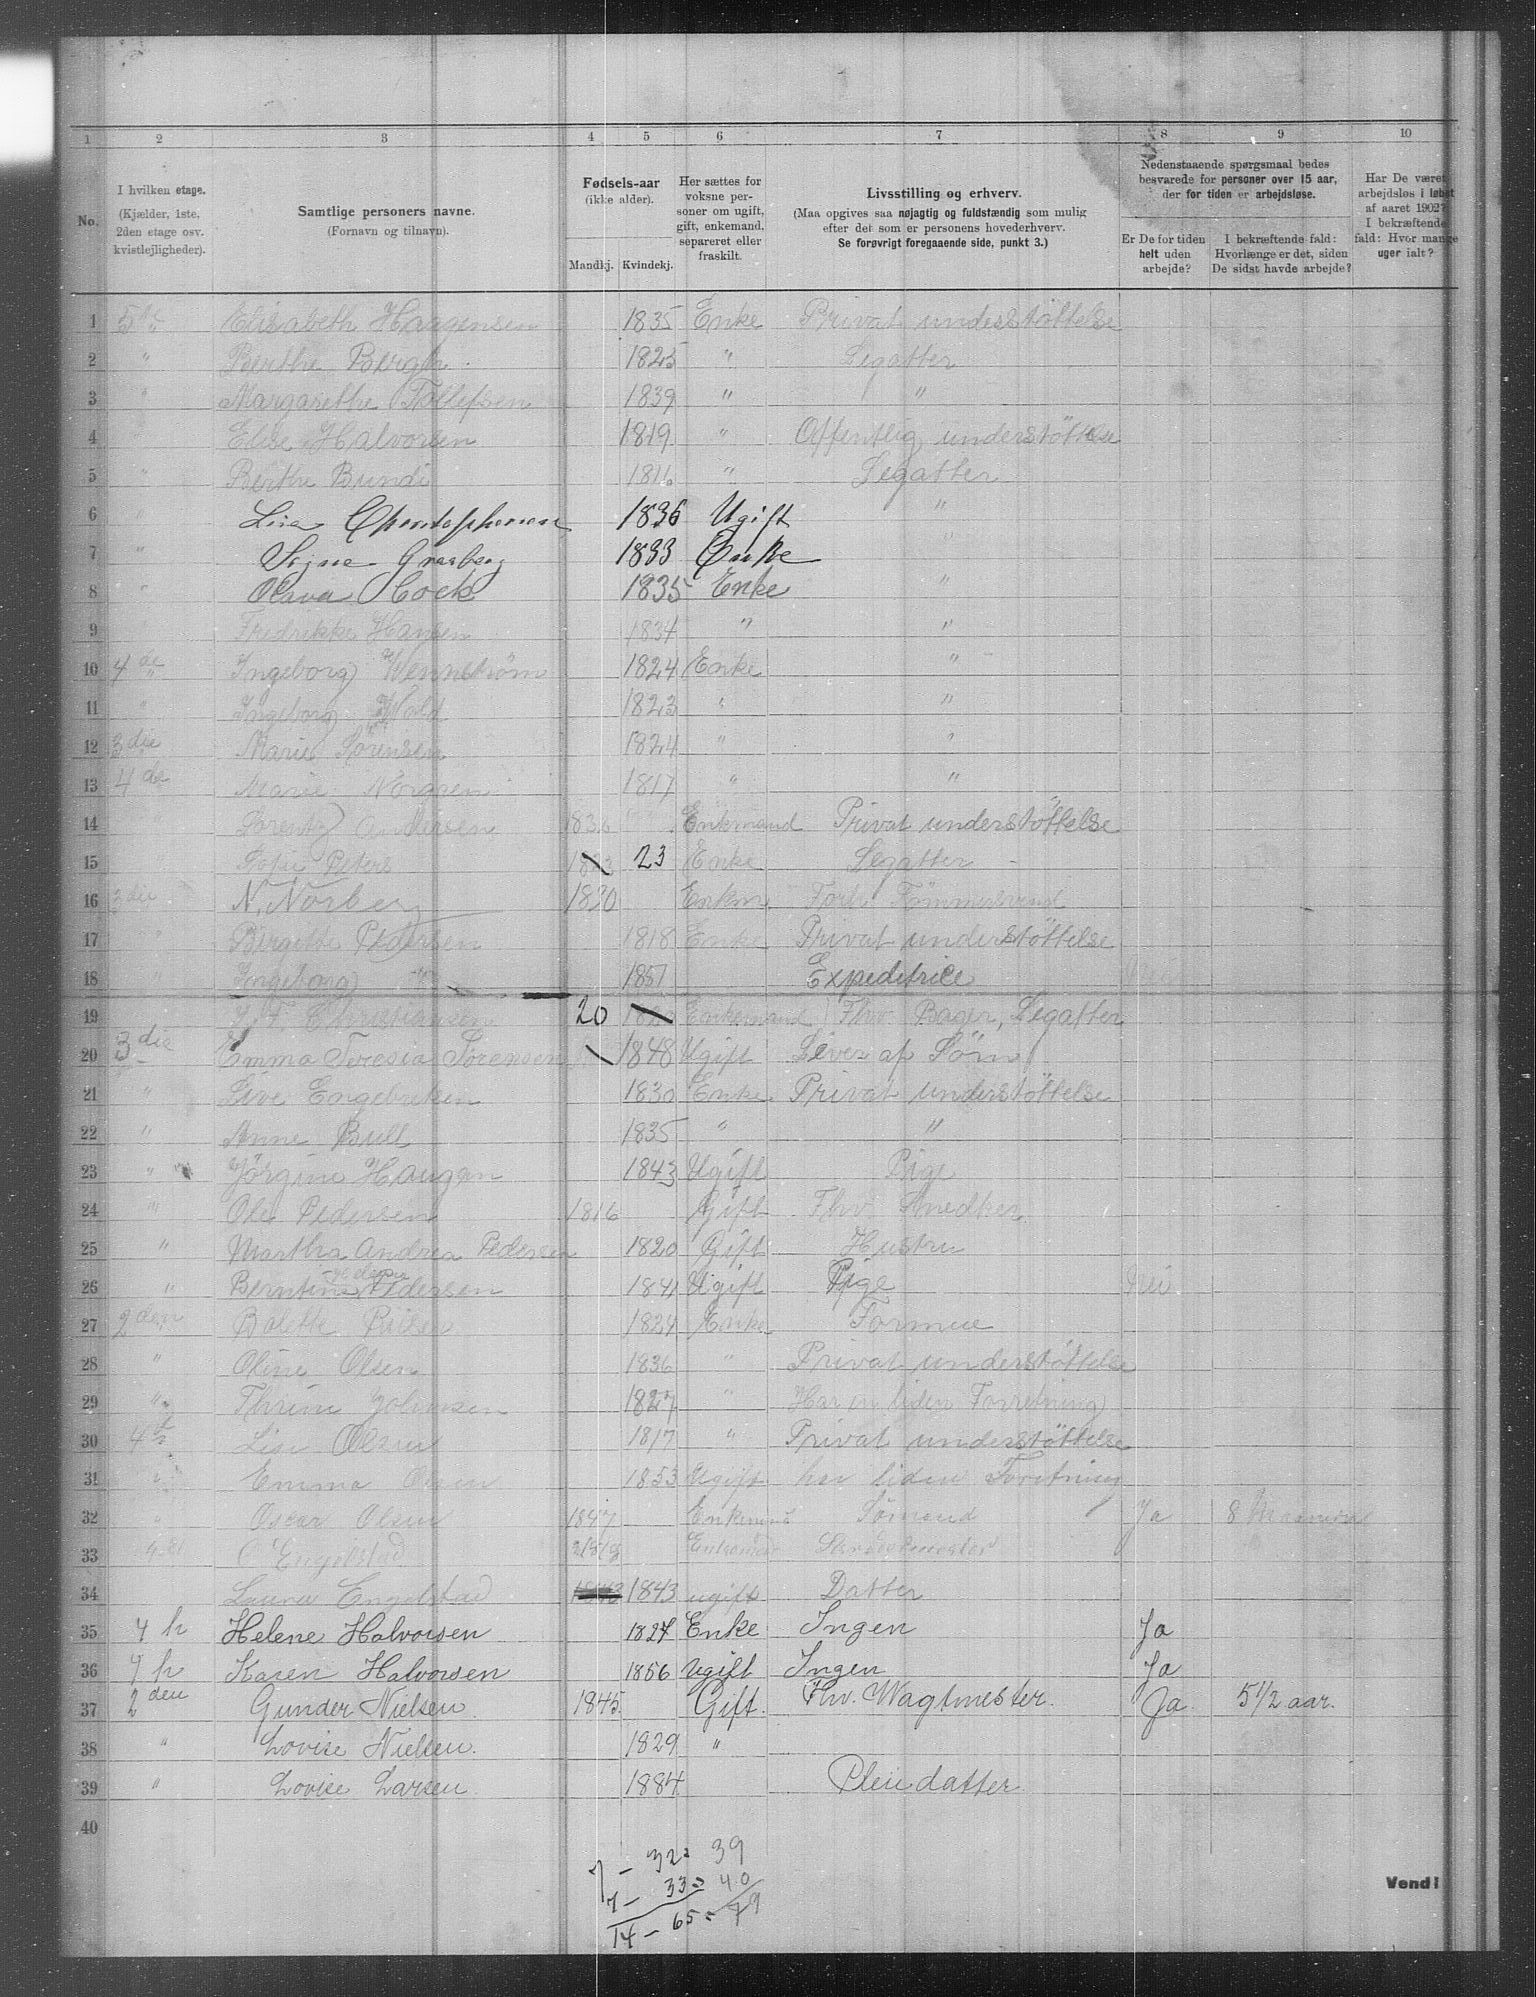 1 2 3 4 5 6 7 8 9 10
No.
I hvilken etage.
(Kjælder, 1ste, 2den etage osv. kvistlejligheder).
Samtlige personers navne.
(Fornavn og tilnavn).
Fødsels-aar
(ikke alder).
Mandkj. Kvindekj.
Her sættes for voksne personer om ugift, gift, enkemand, separeret eller fraskilt.
Livsstilling og erhverv.
(Maa opgives saa nøjagtig og fuldstændig som mulig efter det som er personens hovederhverv.
Se forøvrigt foregaaende side, punkt 3.)
Nedenstaaende spørgsmaal bedes besvarede for personer over 15 aar, der for tiden er arbejdsløse.
Er De for tiden helt uden arbejde?
I bekræftende fald: Hvorlænge er det, siden De sidst havde arbejde?
Har De været arbejdsløs i løbet af aaret 1902? I bekræftende fald: Hvor mange uger ialt?
1 5te Elisabeth Haagensen 1835 Enke Privat understöttelse
2 " Berthe Bergh 1825 " Legatter
3 " Margarethe Tollefsen 1839 " "
4 " Elise Halvorsen 1819 " Offentlig understöttelse
5 " Berthe Bundi 1816 " Legatter
6 " Lisa Christophersen 1836 Ugift "
7 " Signe Graaberg 1833 Enke "
8 " Olava Cock 1835 Enke "
9 " Fredrikke Hansen 1834 " "
10 4de Ingeborg Wennström 1824 Enke "
11 " Ingeborg Wold 1823 " "
12 3die Marie Sörensen 1824 " "
13 4de Marie Norgren 1817 " "
14 Lorentz Andersen 1836 Enkemand Privat understöttelse
15 " Sofie Peters 23 Enke Legatter
16 3die N. Norberg 1820 Enkm. Forh. Tömmermand
17 " Birgitte Pedersen 1818 Enke Privat understöttelse
18 " Ingeborg " 1851 Expeditrice Nei
19 Christiansen 20 Enkemand Fhv. Bager, Legatter
20 3die Emma Teresia Sörensen 1848 Ugift Lever af Söm
21 " Live Engebretsen 1830 Enke Privat understöttelse
22 " Anne Bull 1835 " "
23 " Jörgine Haugan 1843 Ugift Pige
24 " Ole Pedersen 1816 Gift Fhv. Snedker
25 " Martha Andrea Pedersen 1820 Gift Hustru
26 " Berntine Helene Pedersen 1841 Ugift Pige Nei
27 2den Bolette Riise 1824 Enke Formue
28 " Oline Olsen 1836 " Privat understöttelse
29 " Thrine Johnsen 1827 " Har en liden Forretning
30 4de Lise Olsen 1817 " Privat understöttelse
31 " Emma Olsen 1853 Ugift har liden Foretning
32 " Oscar Olsen 1847 Enkemand Sömand Ja 8 Maaneder
33 Engelstad Enkemand
34 Laura Engelstad 1843 ugift Datter
35 4 h Helene Halvorsen 1827 Enke Ingen Ja
36 4 h Karen Halvorsen 1856 Ugift Ingen Ja
37 2den Gunder Nielsen 1845. Gift. Fhv. Wagtmester. Ja. 5 1/2 aar.
38 " Lovise Nielsen. 1829 "
39 " Lovise Larsen. 1884 Pleiedatter
40
7 – 32 = 39
7 – 33 = 40
14 – 65 = 79
Vend!